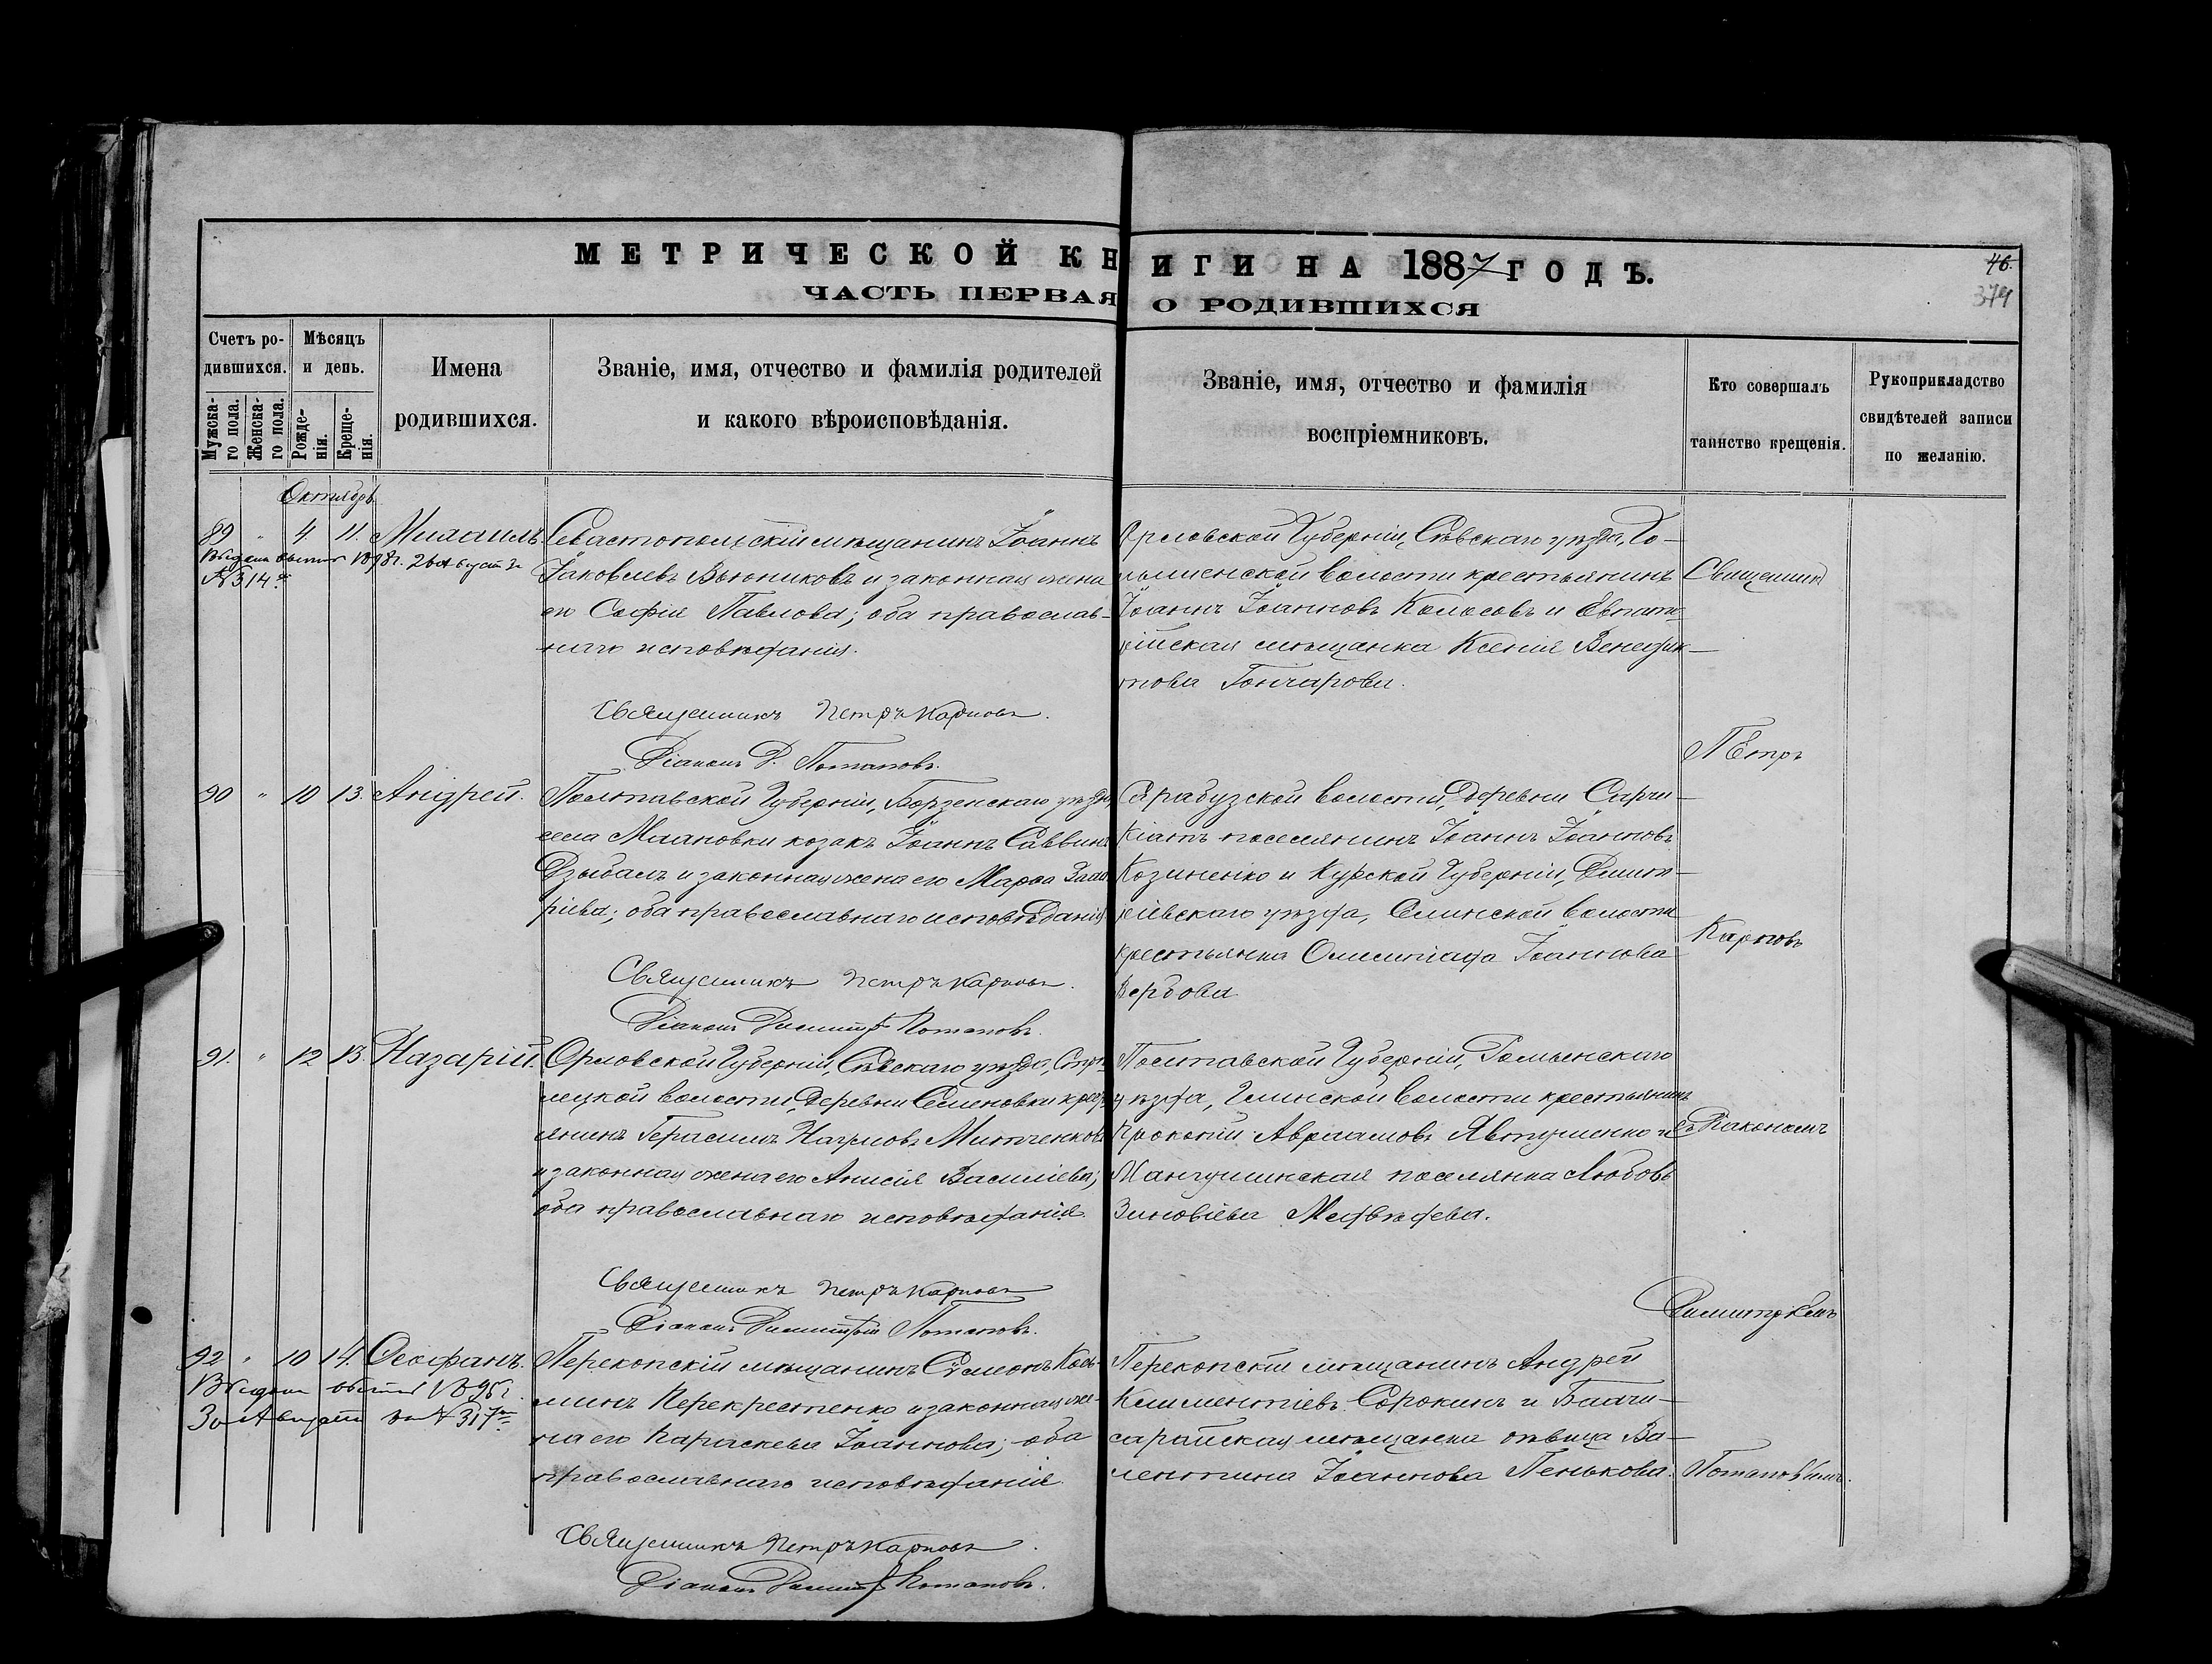 МЕТРИЧЕСКОЙ КНИГИ НА 1887 ГОДЪ.
46.
374
ЧАСТЬ ПЕРВАЯ О РОДИВШИХСЯ
Счетъ ро-
дившихся.
Мужска-
го пола.
Женска-
го пола.
Мѣсяцъ
и день.
Рожде-
нія.
Креще-
нія.
Имена
родившихся.
Званіе, имя, отчество и фамилія родителей
и какого вѣроисповѣданія.
Званіе, имя, отчество и фамилія
воспріемниковъ.
Кто совершалъ
таинство крещенія.
Рукоприкладство
свидѣтелей записи
по желанію.
Октябрь
89 " 4 11. Михаилъ.
1898 г. 26 Августа
№ 314
Севастопольскій мѣщанинъ Іоаннъ
Іаковлевъ Вьюниковъ и законная жена
его Софія Павлова; оба православ-
наго исповѣданія.
Священникъ Петръ Карповъ.
Діаконъ Д. Потаповъ.
Орловской Губерніи, Сѣвскаго уѣзда,
волости крестьянинъ
Іоаннъ Іоанновъ Колосовъ и Евпато-
рійская мѣщанка Ксенія Венедик-
това Гончарова.
90 " 10 13. Андрей.
Полтавской Губерніи, Борзенскаго уѣзда,
села козакъ Іоаннъ Саввинъ
и законная жена его Марѳа
оба православнаго исповѣданія.
Священникъ Петръ Карповъ.
Діаконъ Димитрій Потаповъ.
Сарабузской волости, деревни Сарчи-
Кіятъ поселянинъ Іоаннъ Іоанновъ
Козиненко и Курской Губерніи, Димит-
ріевскаго уѣзда, волости
крестьянка Олимпіада Іоаннова
Вербова.
91. " 12 13. Назарій.
Орловской Губерніи, Сѣвскаго уѣзда, Стрѣ-
лецкой волости, деревни Семеновки крест-
янинъ Герасимъ Наумовъ Митченковъ
и законная жена его Анисія Василіева;
оба православнаго исповѣданія.
Священникъ Петръ Карповъ
Діаконъ Димитрій Потаповъ.
Полтавской Губерніи, Роменскаго
уѣзда, Глинской волости крестьянинъ
Прокопій Авраамовъ Явтушенко и
Мангушинская поселянка Любовь
Зиновіева Медвѣдева.
92 " 10 14. Ѳеофанъ.
1895 г.
30 Августа за № 317
Перекопскій мѣщанинъ Сѵмеонъ Кось-
минъ Перекрестенко и законная же-
на его Параскева Іоаннова; оба
православнаго исповѣданія.
Священникъ Петръ Карповъ.
Діаконъ Димитрій Потаповъ.
Перекопскій мѣщанинъ Андрей
Климентіевъ Сорокинъ и Бахчи-
сарайская мѣщанка дѣвица Ва-
лентина Іоаннова Пенькова.
Священникъ
Петръ
Карповъ
съ Діакономъ
Димитріемъ
Потаповымъ.